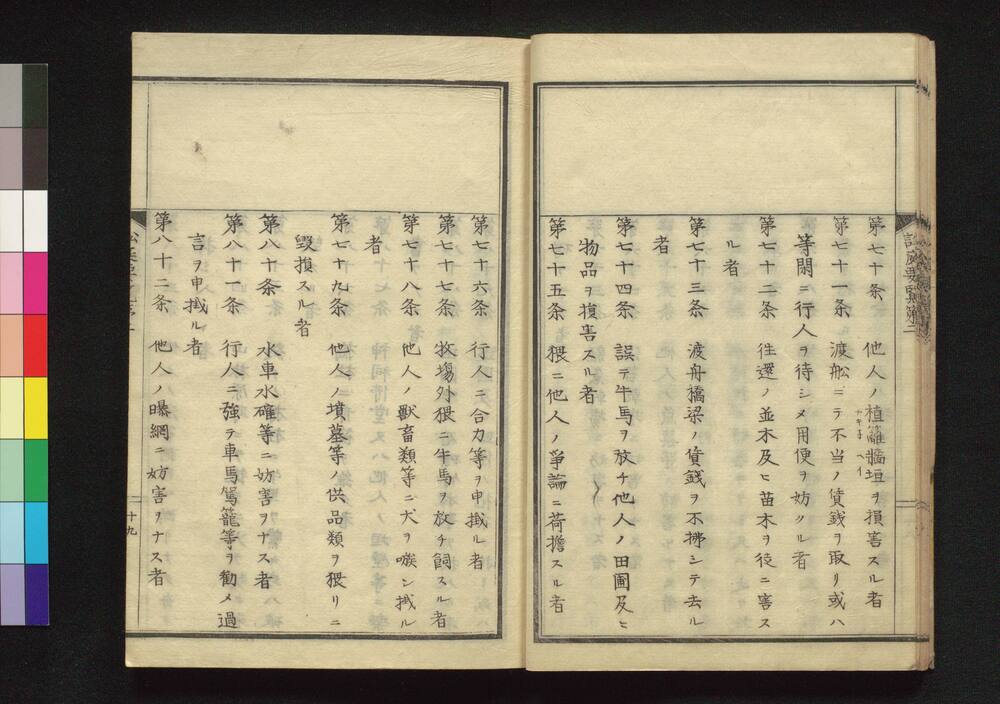 第七十条　他人ノ植籬牆垣ヲ損害スル者
第七十一条　渡舩ニテ不当ノ賃銭ヲ取リ或ハ
等閑ニ行人ヲ待シメ用便ヲ妨クル者
第七十二条　徃還ノ並木及ヒ苗木ヲ徒ニ害ス
ル者
第七十三条　渡舟橋梁ノ賃銭ヲ不拂シテ去ル
者
第七十四条　誤テ牛馬ヲ放チ他人ノ田圃及ヒ
物品ヲ損害スル者
第七十五条　猥ニ他人ノ爭論ニ荷擔スル者
第七十六条　行人ニ合力等ヲ申掛ル者
第七十七条　牧塲外猥ニ牛馬ヲ放チ飼スル者
第七十八条　他人ノ獣畜類等ニ犬ヲ嗾シ掛ル
者
第七十九条　他人ノ墳墓等ノ供品類ヲ猥リニ
毀損スル者
第八十条　水車水確等ニ妨害ヲナス者
第八十一条　行人ニ強テ車馬駕籠等ヲ勸メ過
言ヲ申掛ル者
第八十二条　他人ノ曝網ニ妨害ヲナス者
十九